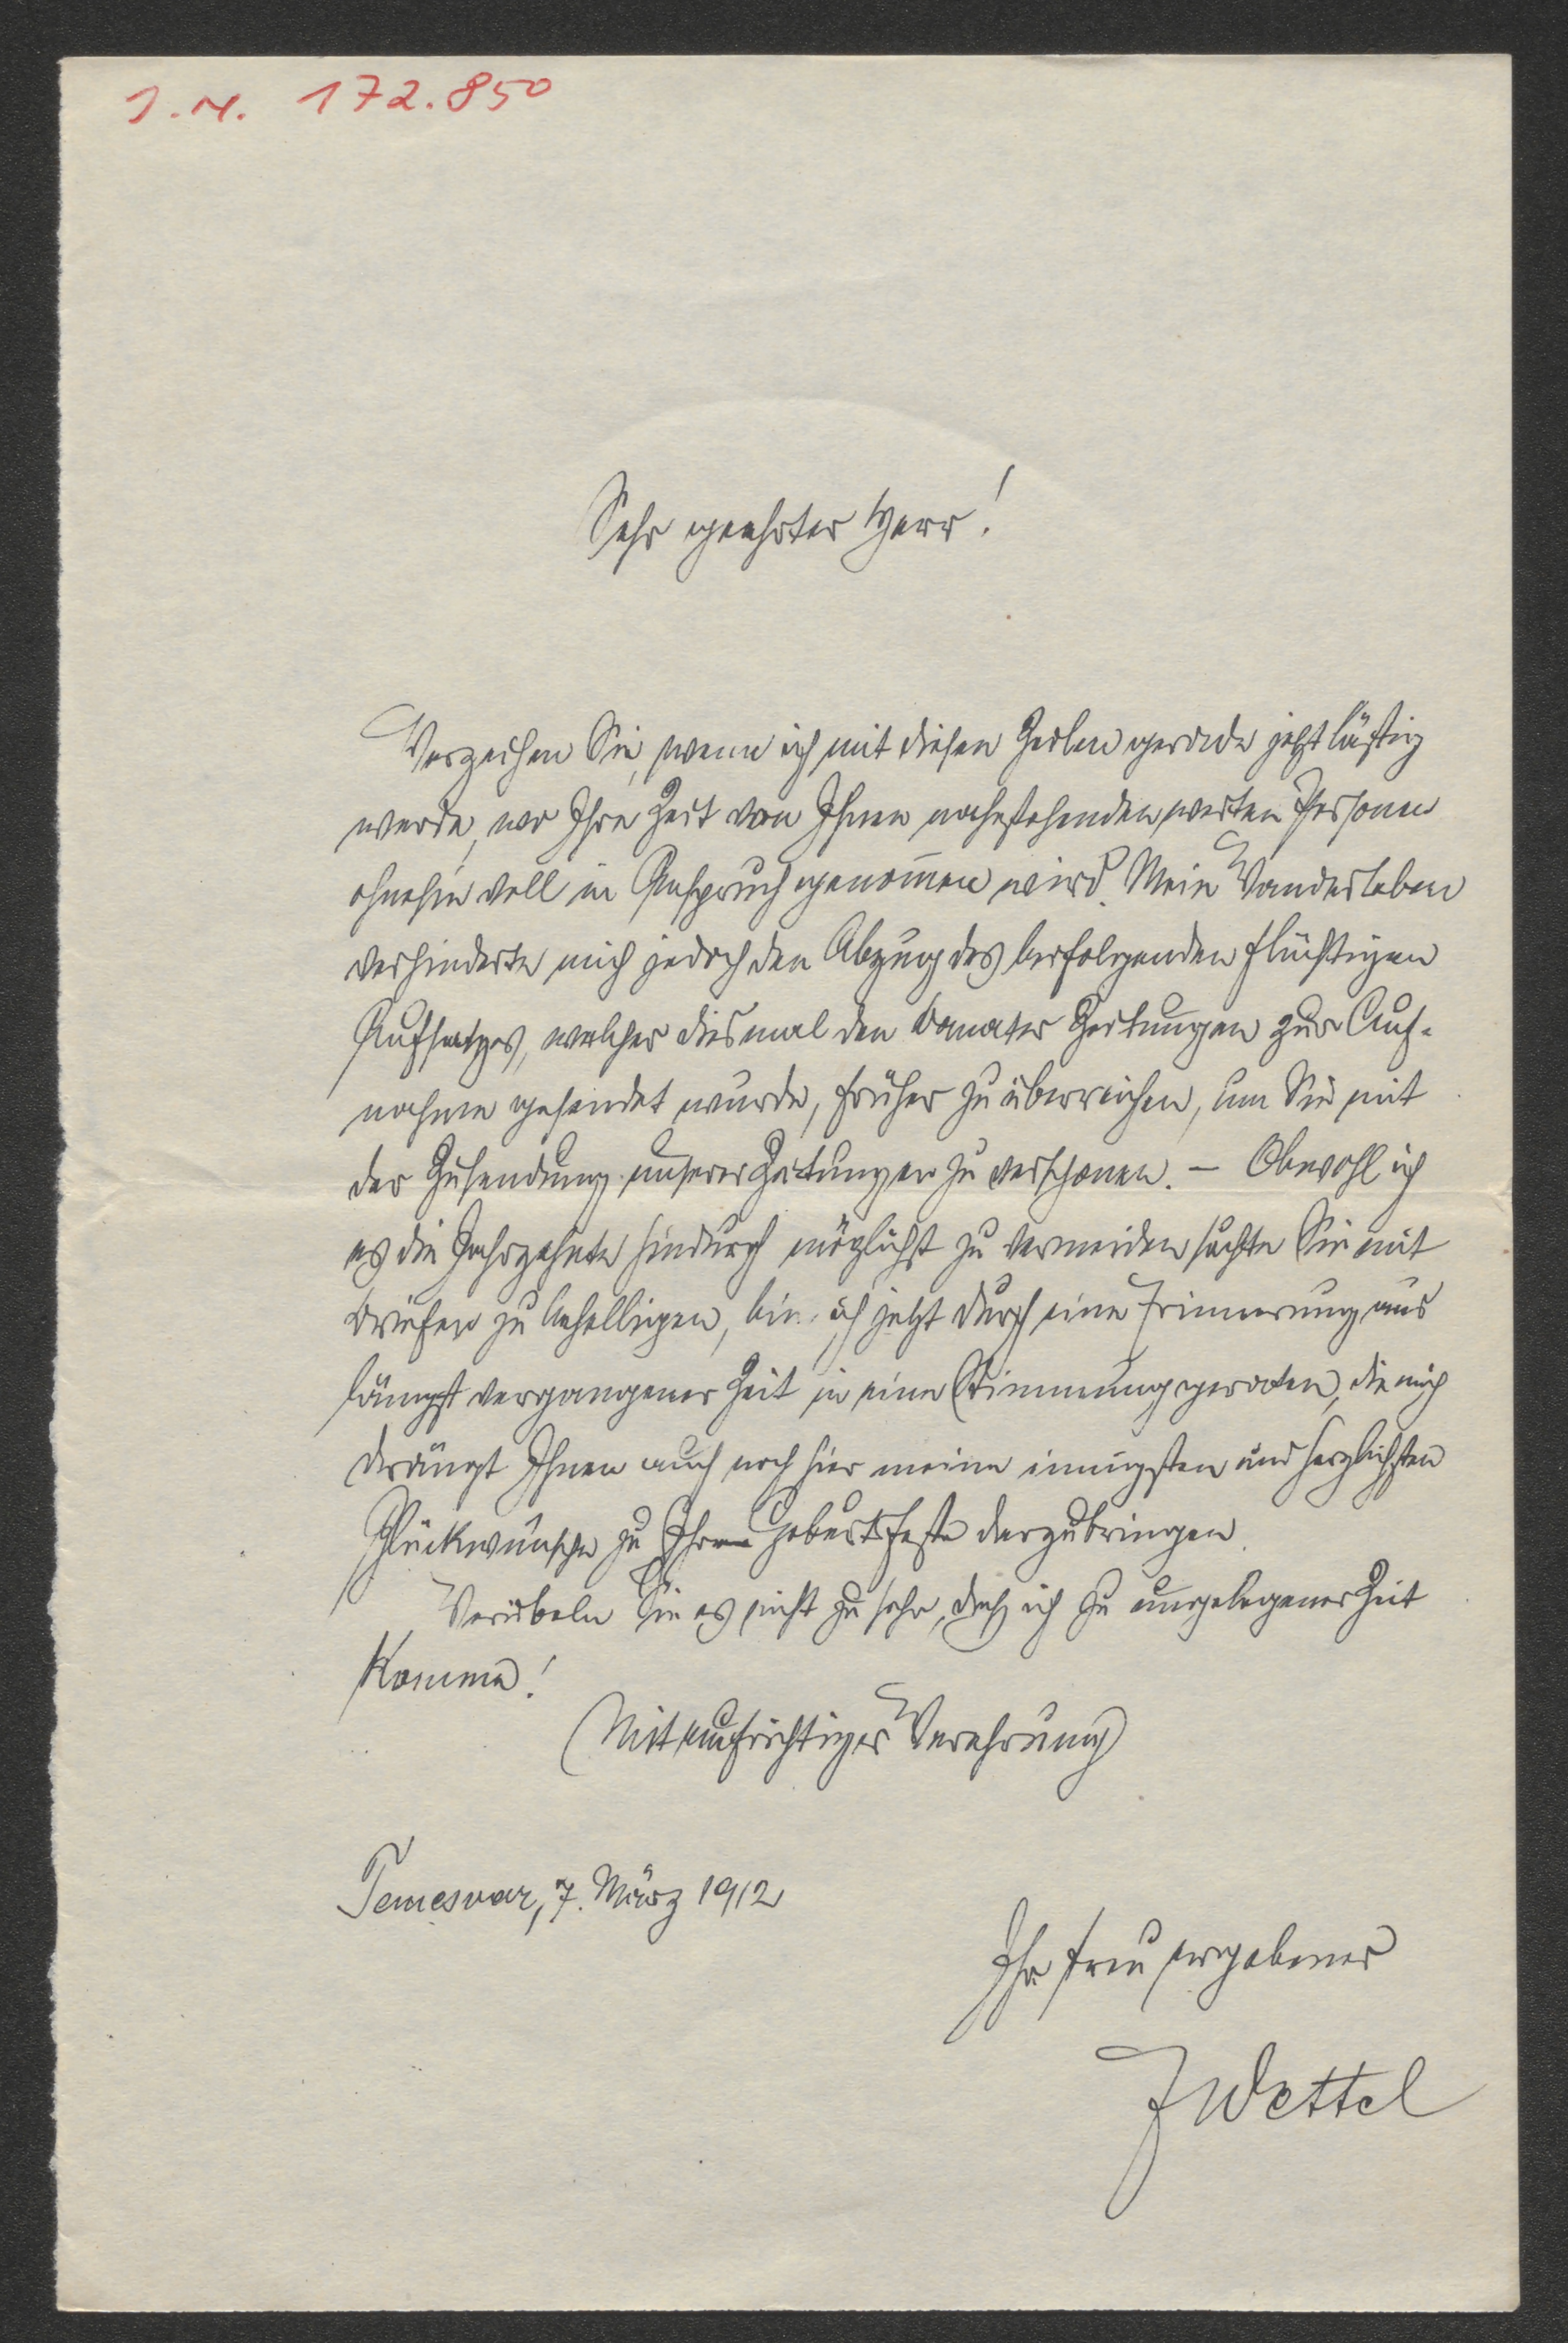 J.N. 172.850
Sehr geehrter Herr!
Verzeihen Sie, wenn ich mit diesen Zeilen gerade jetzt lästig
werde, wo Ihre Zeit von Ihnen nahestehenden werten Personen
ohnehin voll in Anspruch genom̅en wird. Mein Wanderleben
verhinderte mich jedoch den Abzug des beifolgenden flüchtigen
Aufsatzes, welcher diesmal den Banater Zeitungen zur Auf-
nahme gesendet wurde, früher zu überreichen, um Sie mit
der Zusendung unserer Zeitungen zu verschonen. – Obwohl ich
es die Jahrzehnte hindurch möglichst zu vermeiden suchte Sie mit
Briefen zu behelligen, bin ich jetzt durch eine Erinnerung aus
längst vergangener Zeit in eine Stimmung geraten, die mich
drängt Ihnen auch noch hier meine innigsten und herzlichsten
Glückwünsche zu Ihrem Geburtsfeste darzubringen.
Verübeln Sie es nicht zu sehr, daß ich zu ungelegener Zeit
komme!
Mit aufrichtiger Verehrung
Temesvar, 7. März 1912
Ihr treu ergebener
F Wettel